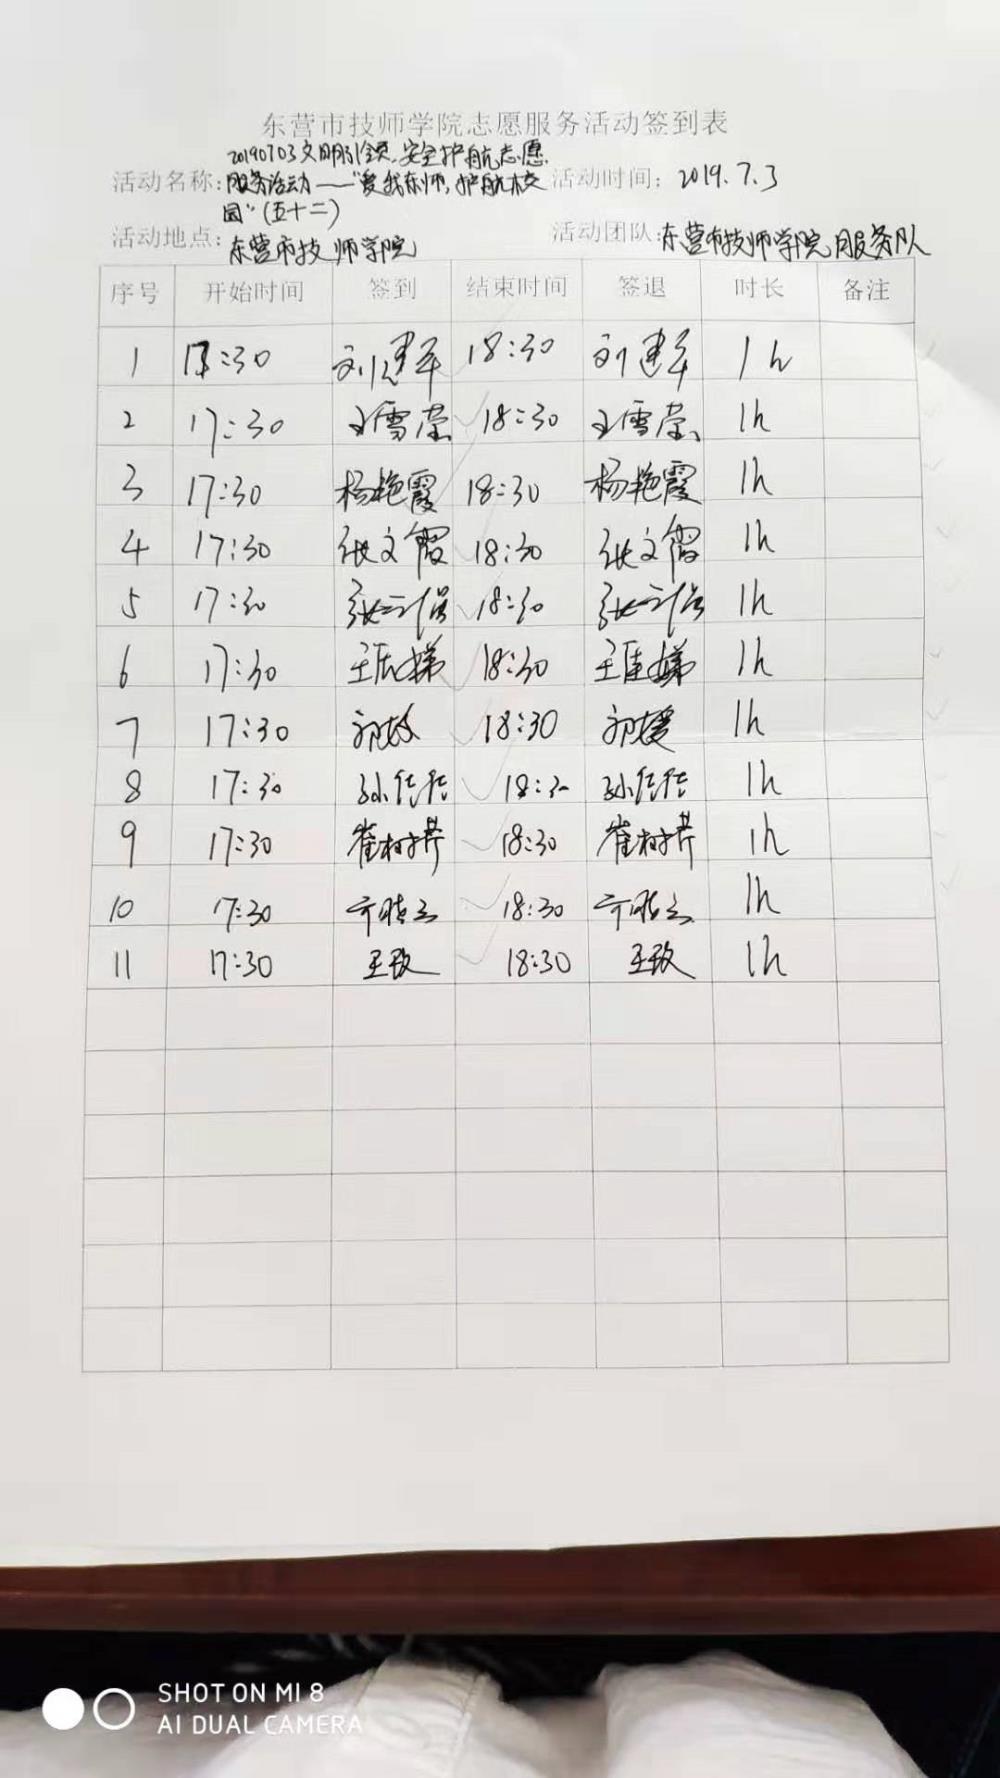 东营市技师学院志愿服务活动签到表
20190703文明引领,安全护航志愿
活动名称:服务活动——"爱我东师,护航校 活动时间: 2019.7.3
园"(五十二)
活动地点:东营市技师学院 活动团队:东营市技师学院服务队
序号 开始时间 签到 结束时间 签退 时长 备注
1 17:30 刘建军 18:30 刘建军 1h
2 17:30 王雪莹 18:30 王雪莹 1h
3 17:30 杨艳霞 18:30 杨艳霞 1h
4 17:30 张文霞 18:30 张文霞 1h
5 17:30 18:30 1h
6 17:30 18:30 1h
7 17:30 18:30 郭媛 1h
8 17:30 孙佳佳 18:30 孙佳佳 1h
9 17:30 崔树芹 18:30 崔树芹 1h
10 17:30 18:30 1h
11 17:30 王玫 18:30 王玫 1h
SHOT ON MI 8
AI DUAL CAMERA